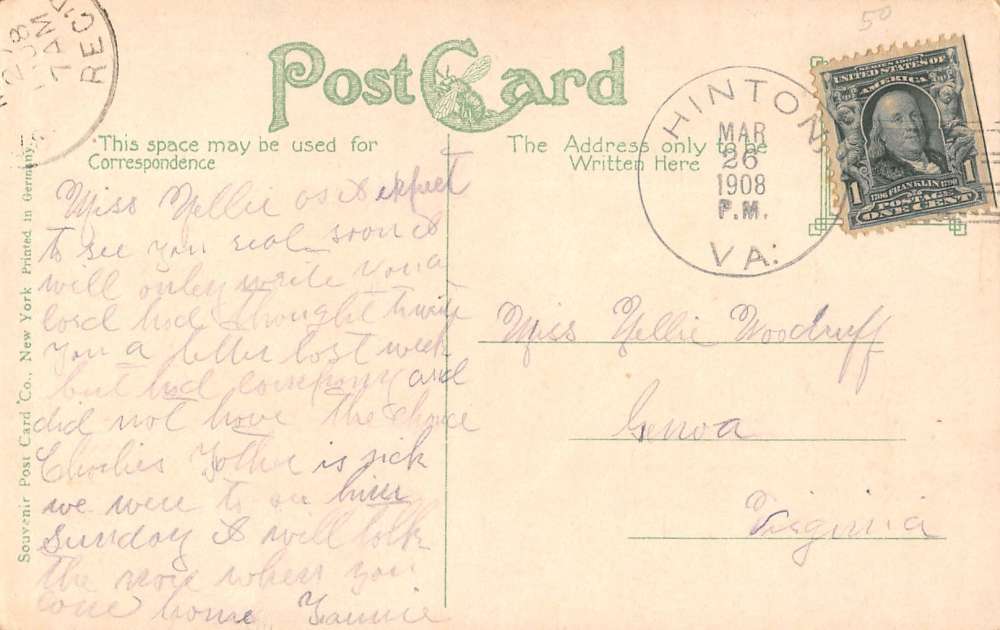 50
REC
7 AM
Post Card
This space may be used for
Correspondence
The Address only to be
Written Here
HINTON
MAR
26
1908
P.M.
VA.
SERIES 1902
UNITED STATES OF
AMERICA
1 1706 FRANKLIN 1790 1
POSTAGE
ONE CENT
Souvenir Post Card Co., New York Printed in Germany.
Miss Nellie as I expect
to see you real soon I
will only write you a
card had thought to write
you a letter last week
but had company and
did not have the chance
Charlies Father is sick
we were to see him
Sunday I will talk
the more when you
come home Fannie
Miss Nellie Woodruff
Genoa
Virginia